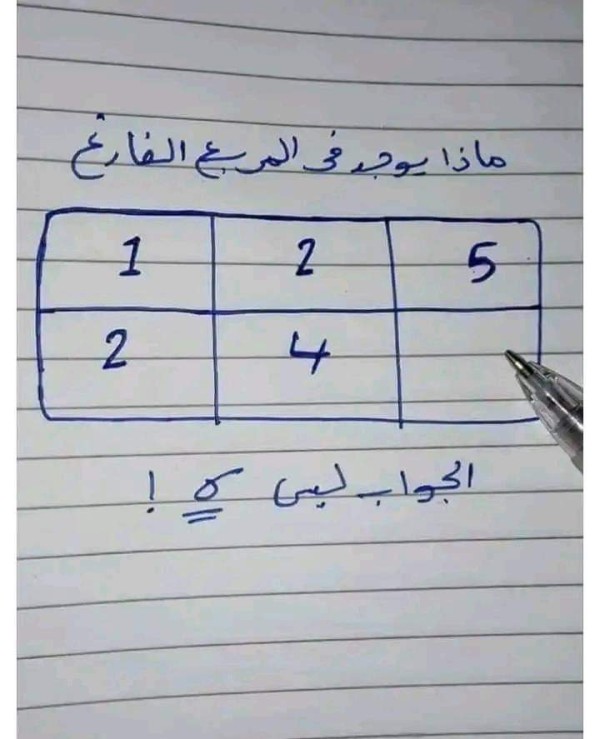 ماذا يوجد في المربع الفارغ
1 2 5
2 4
الجواب ليس ٥ !